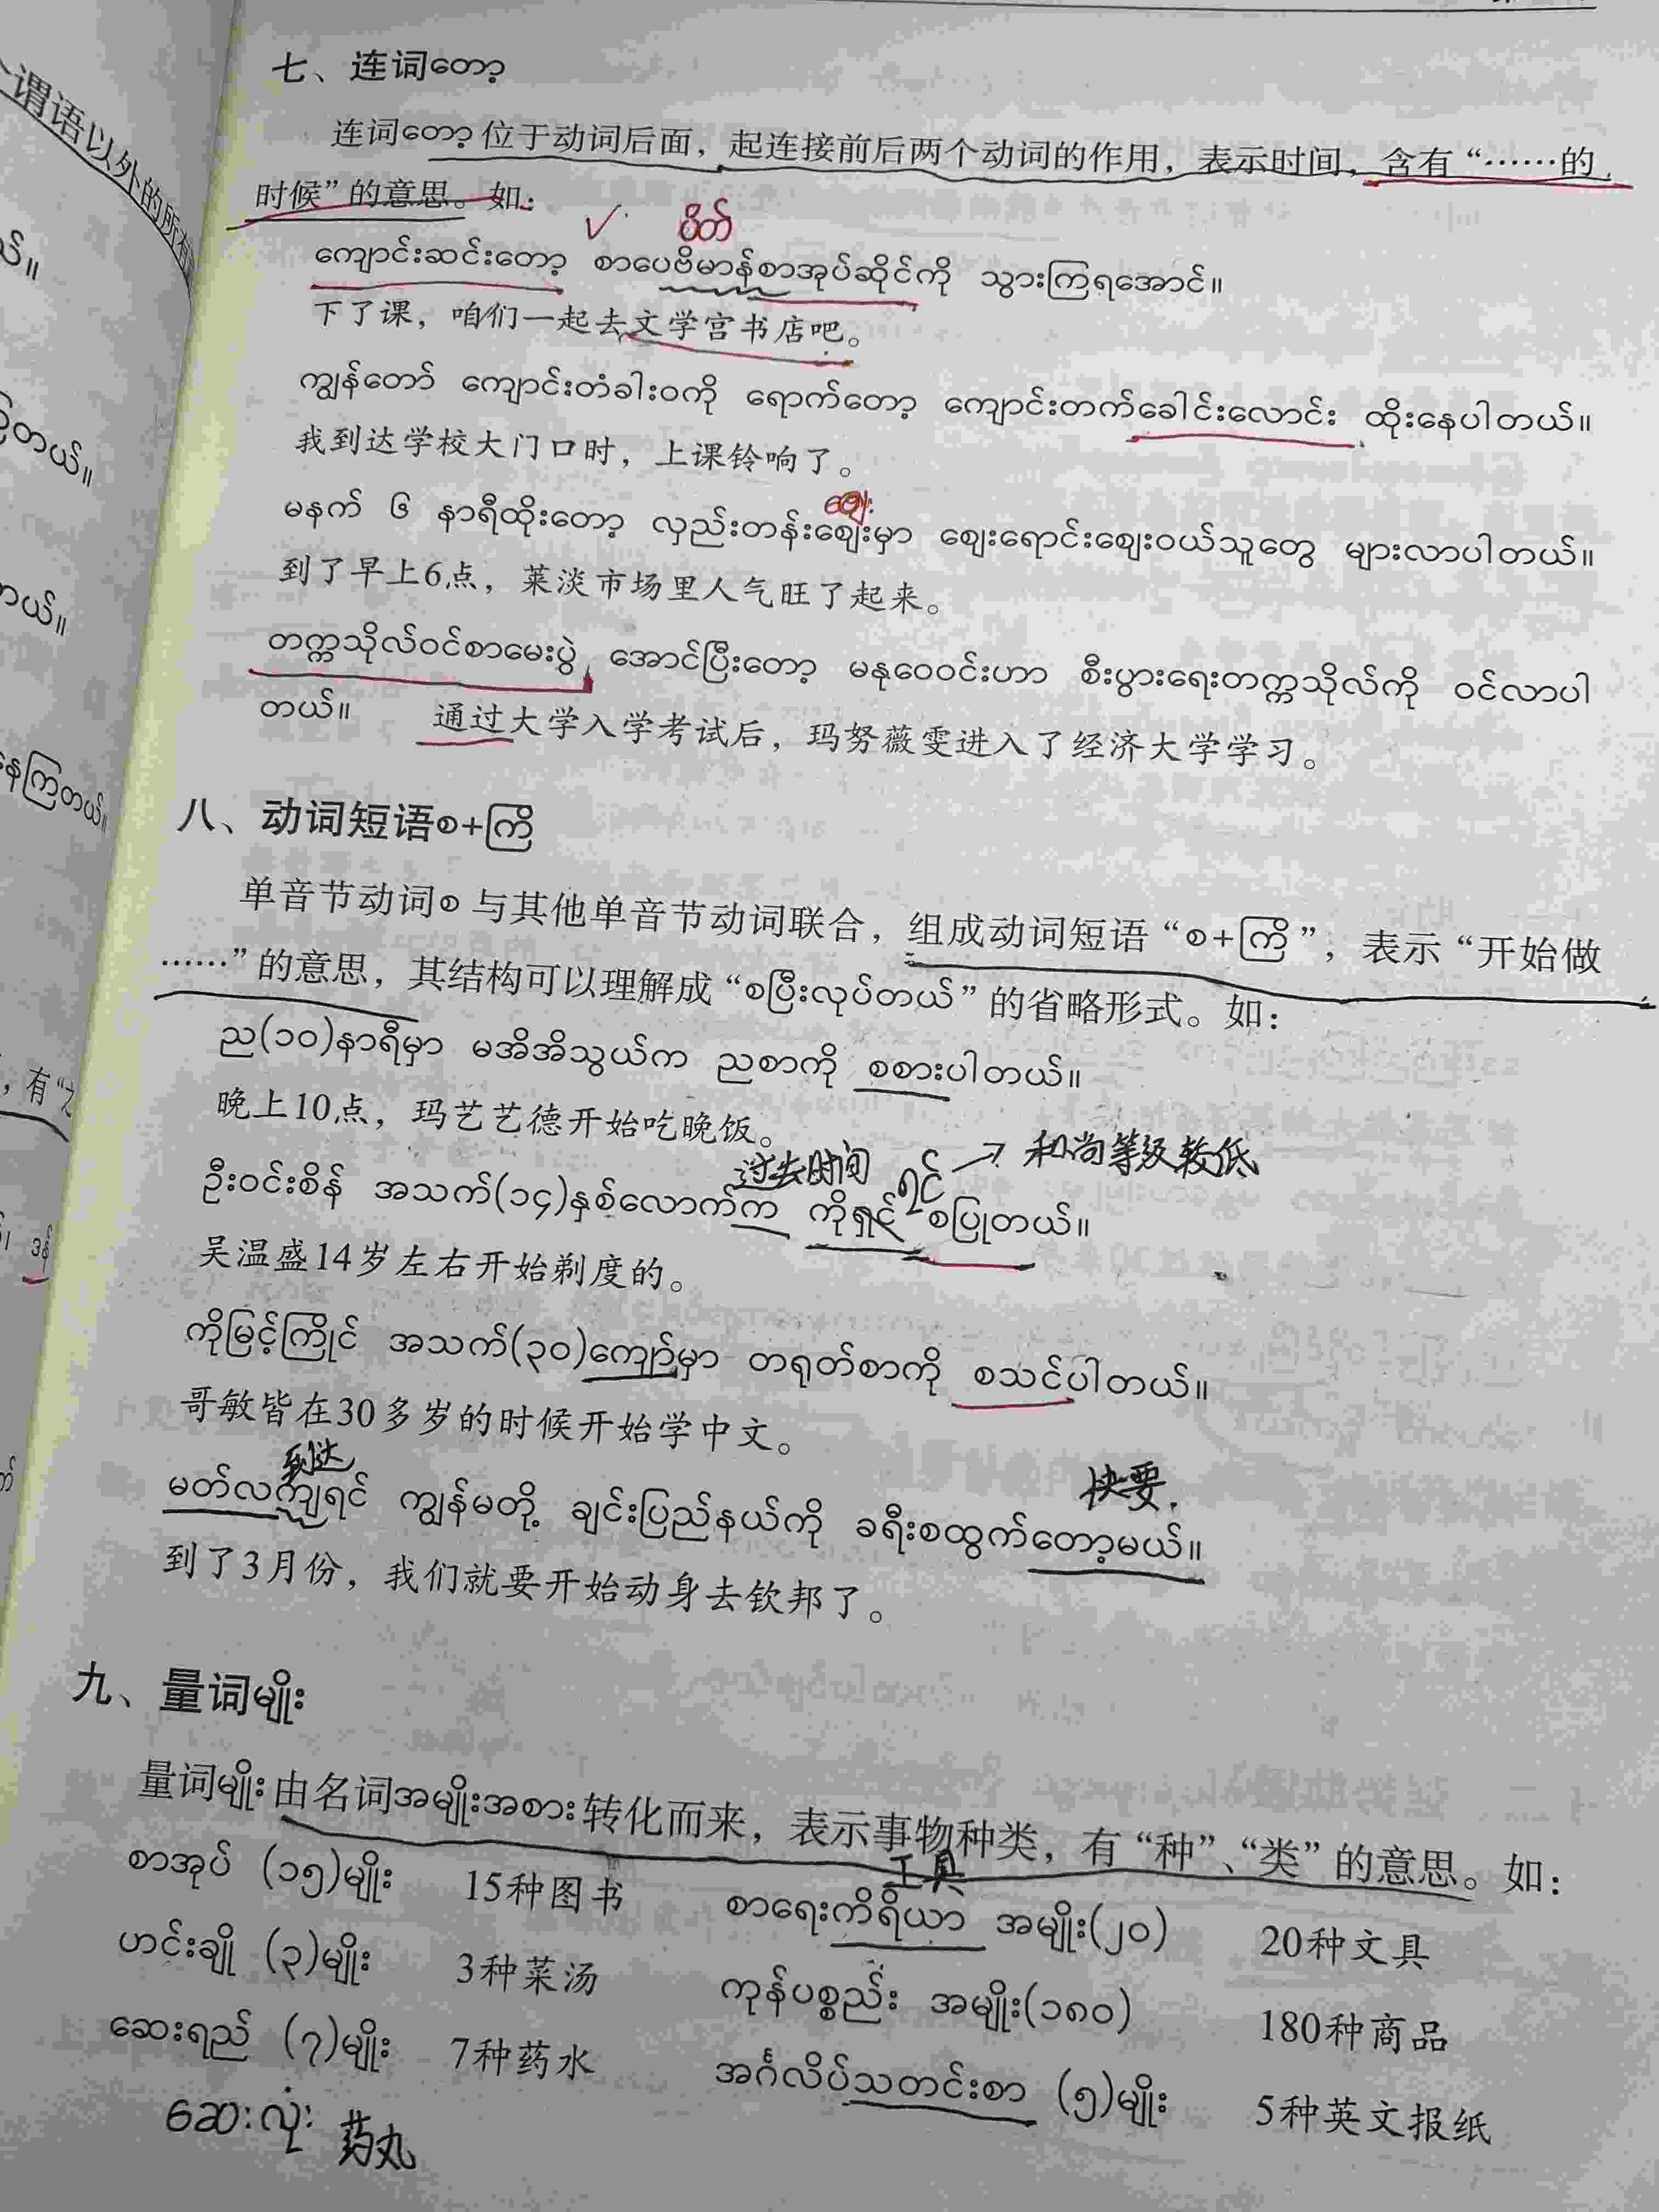 个谓语以外的所有
七、连词တော့
连词တော့ 位于动词后面，起连接前后两个动词的作用，表示时间，含有“……的
时候”的意思。如：
✓ ပိတ်
ကျောင်းဆင်းတော့ စာပေဗိမာန်စာအုပ်ဆိုင်ကို သွားကြရအောင်။
下了课，咱们一起去文学宫书店吧。
ကျွန်တော် ကျောင်းတံခါးဝကို ရောက်တော့ ကျောင်းတက်ခေါင်းလောင်း ထိုးနေပါတယ်။
我到达学校大门口时，上课铃响了。
ဈေး
မနက် ၆ နာရီထိုးတော့ လှည်းတန်းဈေးမှာ ဈေးရောင်းဈေးဝယ်သူတွေ များလာပါတယ်။
到了早上6点，莱淡市场里人气旺了起来。
တက္ကသိုလ်ဝင်စာမေးပွဲ အောင်ပြီးတော့ မနုဝေဝင်းဟာ စီးပွားရေးတက္ကသိုလ်ကို ဝင်လာပါ
တယ်။ 通过大学入学考试后，玛努薇雯进入了经济大学学习。
နေကြတယ်။
八、动词短语စ+ကြိ
单音节动词စ 与其他单音节动词联合，组成动词短语“စ+ကြိ”，表示“开始做
……”的意思，其结构可以理解成“စပြီးလုပ်တယ်”的省略形式。如：
ည(၁၀)နာရီမှာ မအိအိသွယ်က ညစာကို စစားပါတယ်။
，有“之
晚上10点，玛艺艺德开始吃晚饭。
过去时间 ရင် → 和尚等级较低
ဦးဝင်းစိန် အသက်(၁၄)နှစ်လောက်က ကိုရှင် စပြုတယ်။
吴温盛14岁左右开始剃度的。
ကိုမြင့်ကြိုင် အသက်(၃၀)ကျော်မှာ တရုတ်စာကို စသင်ပါတယ်။
哥敏皆在30多岁的时候开始学中文。
到达 快要，
မတ်လကျရင် ကျွန်မတို့ ချင်းပြည်နယ်ကို ခရီးစထွက်တော့မယ်။
到了3月份，我们就要开始动身去钦邦了。
九、量词မျိုး
量词မျိုး 由名词အမျိုးအစား 转化而来，表示事物种类，有“种”、“类”的意思。如：
工具
စာအုပ် (၁၅)မျိုး 15种图书 စာရေးကိရိယာ အမျိုး(၂၀) 20种文具
ဟင်းချို (၃)မျိုး 3种菜汤 ကုန်ပစ္စည်း အမျိုး(၁၈၀) 180种商品
ဆေးရည် (၇)မျိုး 7种药水 အင်္ဂလိပ်သတင်းစာ (၅)မျိုး 5种英文报纸
ဆေးလုံး 药丸